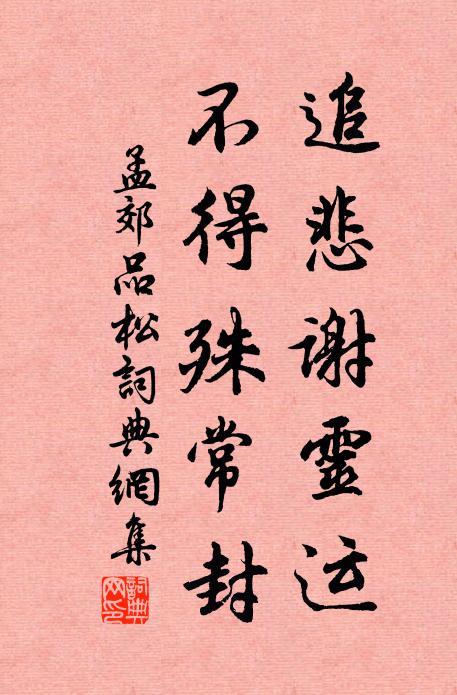 追悲谢靈运
不得殊常封
孟郊品松詞典網集
詞典網印